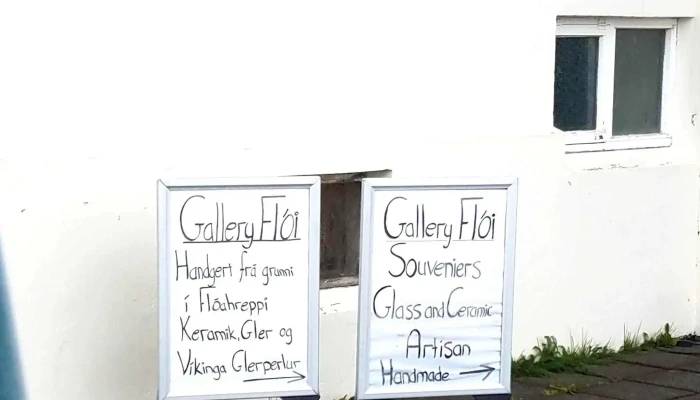 Gallery Flói
Handgert frá grunni
í Flóahreppi
Keramik, Gler og
Víkinga Glerperlur
Gallery Flói
Souveniers
Glass and Ceramic
Artisan
Handmade